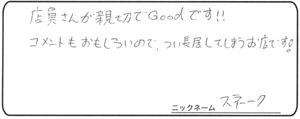 店員さんが親切でGoodです!!
コメントもおもしろいので、つい長居してしまうお店です!
ニックネーム スネーク